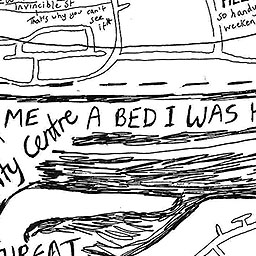 Invincible St
That's why you can't
see it
so handy
weeken
ME A BED I WAS H
ity Centre
UREAT